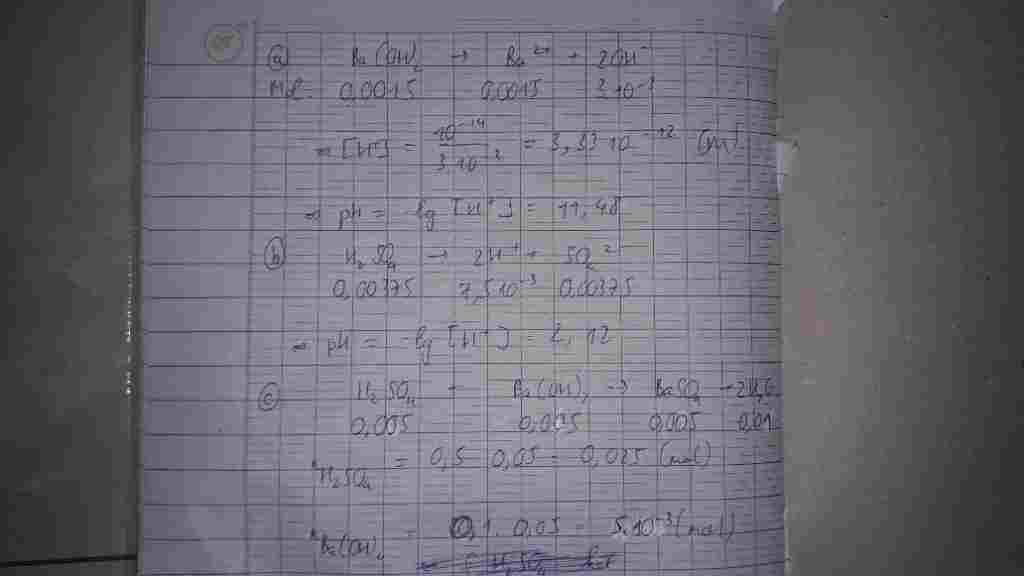 (a) Ba(OH)₂ → Ba²⁺ + 2OH⁻
0,0015 0,0015 3.10⁻³
⇒ [H⁺] = 10⁻¹⁴ / 3.10⁻³ = 3,33.10⁻¹² (M)
⇒ pH = -lg [H⁺] = 11,48
(b) H₂SO₄ → 2H⁺ + SO₄²⁻
0,00375 7,5.10⁻³ 0,00375
⇒ pH = -lg [H⁺] = 2,12
(c) H₂SO₄ + Ba(OH)₂ → BaSO₄ + 2H₂O
0,005 0,005 0,005 0,01
nH₂SO₄ = 0,5 . 0,05 = 0,025 (mol)
nBa(OH)₂ = 0,1 . 0,05 = 5.10⁻³ (mol)